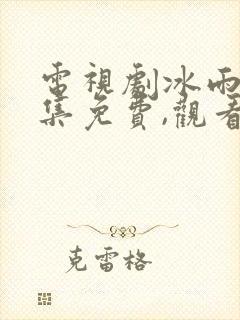 電視劇冰雨
集免費,觀看
克雷格